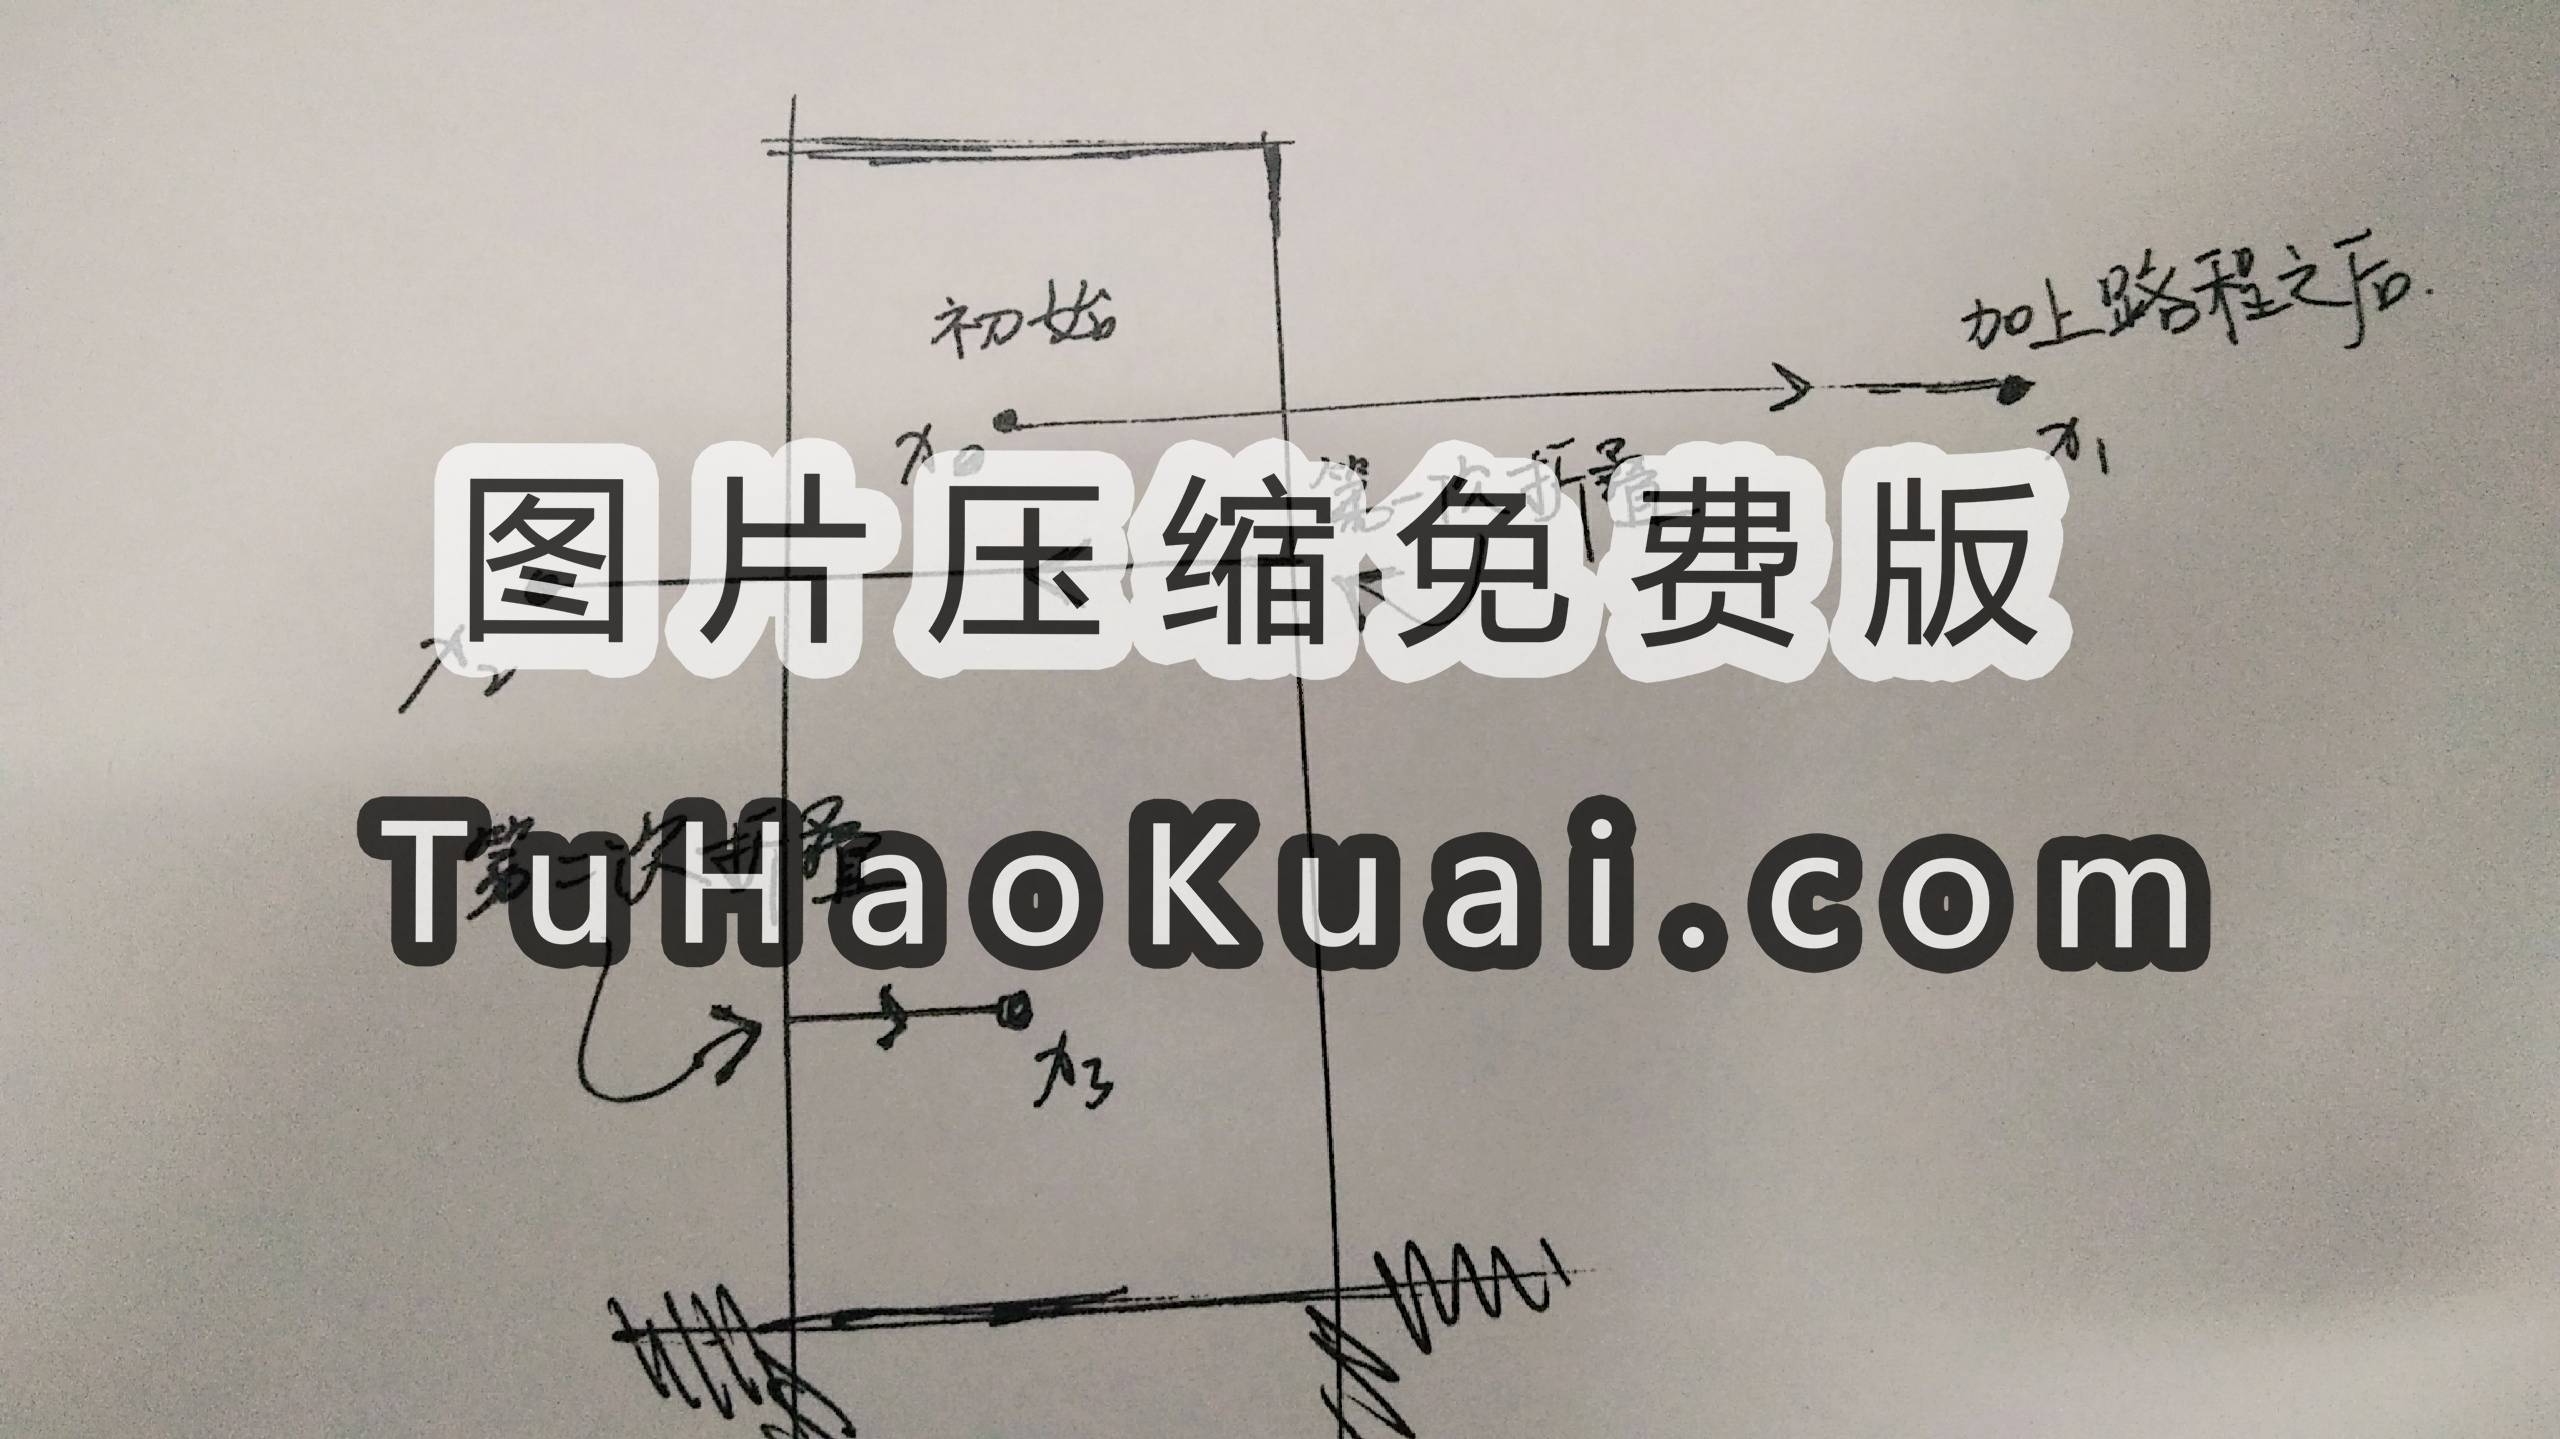 初始
加上路程之后.
x0
x1
第一次折叠
图片压缩免费版
x2
第二次折叠
TuHaoKuai.com
x3